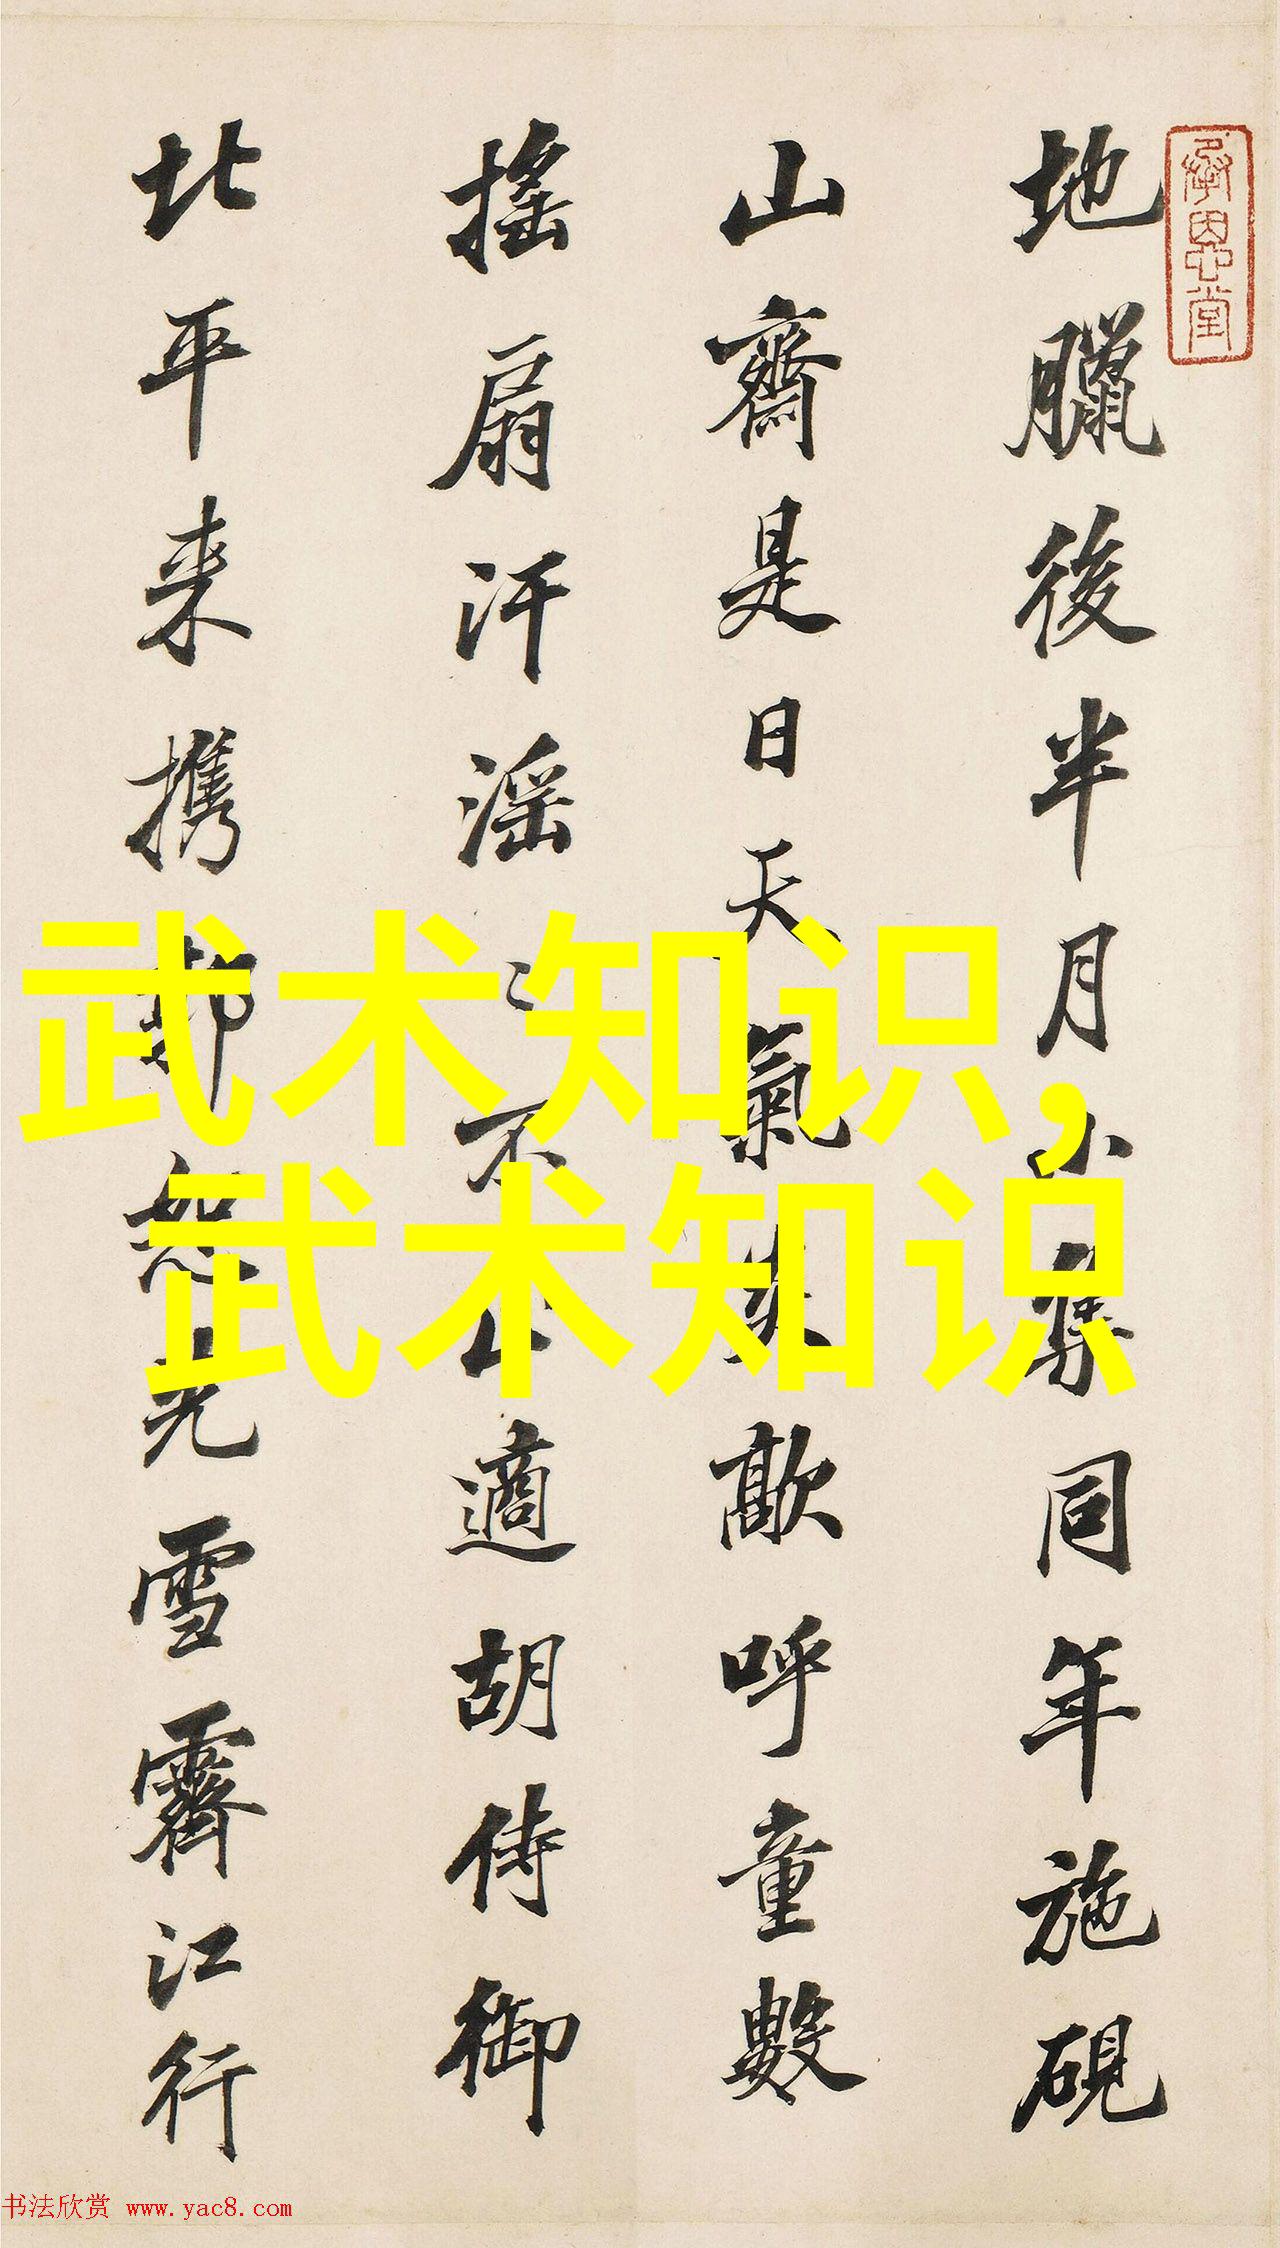 承恩堂
地臘後半月小集同年施硯
山齋是日天氣炎歊呼童數
搖扇汗滛〻不止適胡侍御
北平来携郭恕先雪霽江行
武术知识,
武术知识
书法欣赏 www.yac8.com